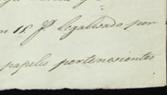 18 legalizado por
papeles pertenecientes